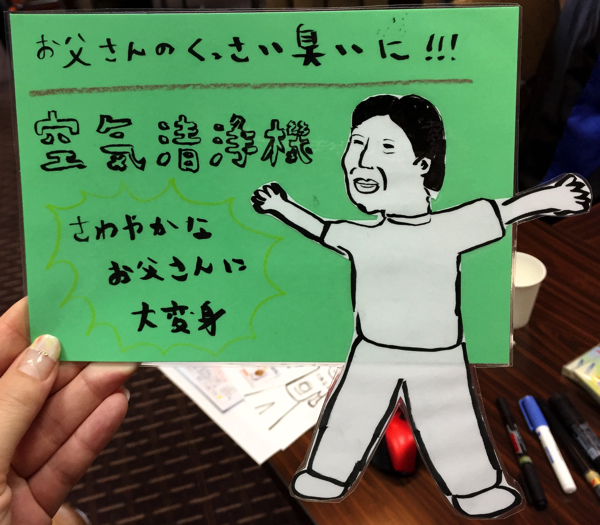 お父さんのくっさい臭いに!!!
空気清浄機
さわやかな
お父さんに
大変身